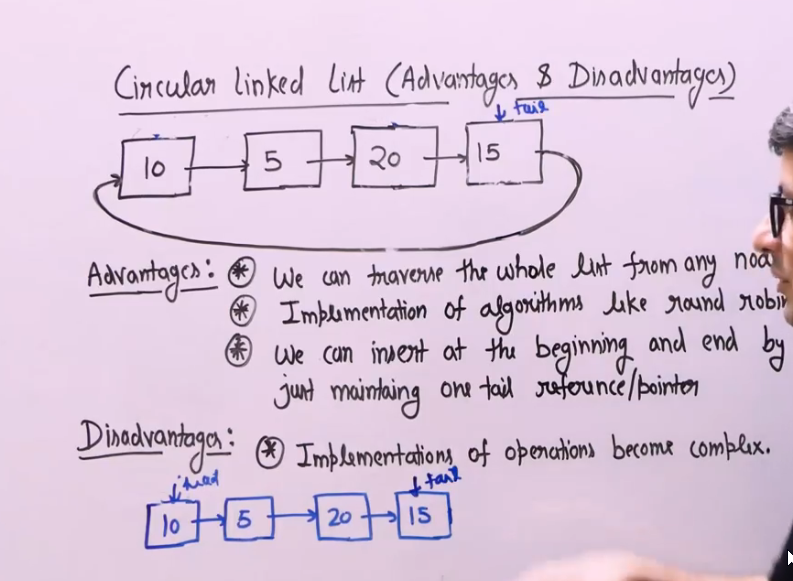 Circular Linked List (Advantages & Disadvantages)
tail
10 5 20 15
Advantages: * We can traverse the whole list from any
* Implementation of algorithms like round
* We can insert at the beginning and end by
just maintaing one tail reference/pointer
Disadvantages: * Implementations of operations become complex.
head tail
10 5 20 15